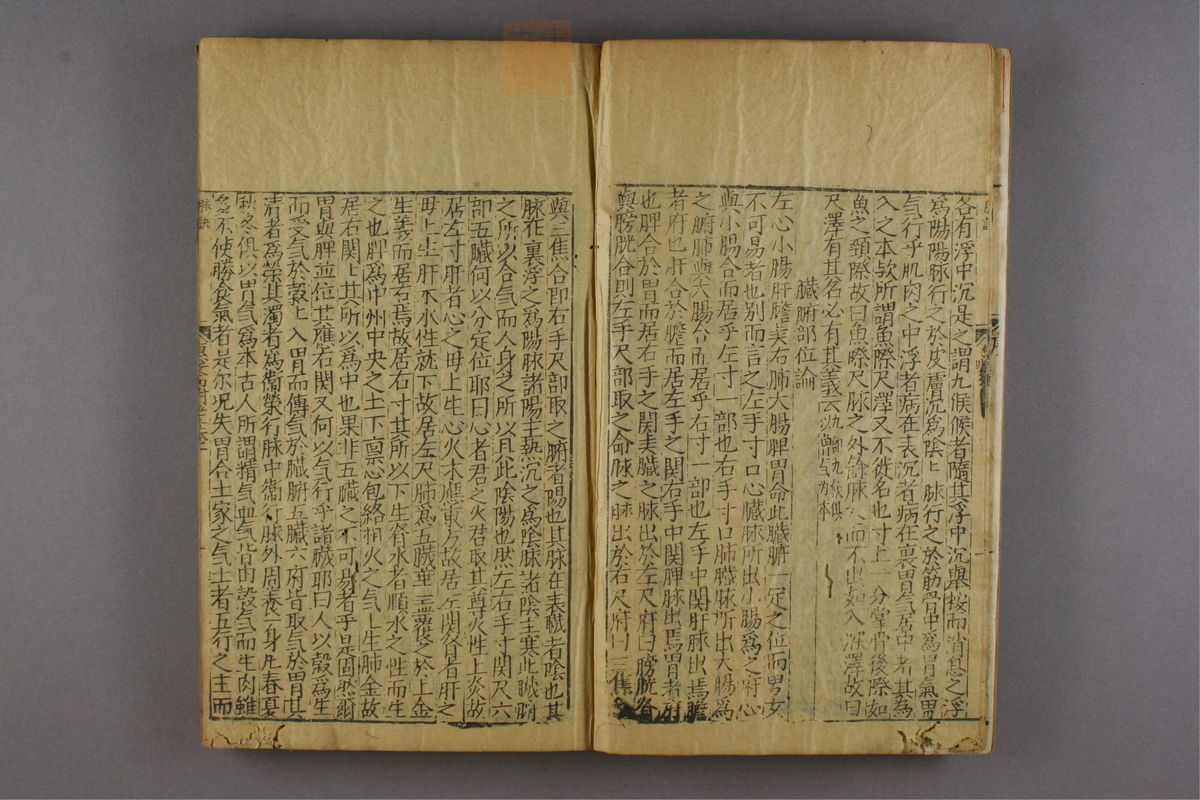 各有浮中沉是之謂九候候者隨其浮中沉舉按而消息之浮
為陽陽脉行之於皮膚沉為陰陰脉行之於筋骨中為胃氣胃
气行乎肌肉之中浮者病在表沉者病在裏胃气居中者其為
入之本欤所謂魚際尺澤又不徙名也寸上一分掌骨後際如
魚之頸際故曰魚際尺脉之外餘脉入而不出如入深澤故曰
尺澤有其名必有其義云
臟腑部位論
左心小腸肝膽矣右肺大腸脾胃命此臟腑一定之位而男女
不可易者也別而言之左手寸口心臟脉所出小腸為之府心
與小腸合而居乎左寸一部也右手寸口肺臟脉所出大腸為
之腑肺與大腸合而居乎右寸一部也左手中関肝脉出焉膽
者府也肝合於膽而居左手之関右手中関脾脉出焉胃者府
也脾合於胃而居右手之関矣臟之脉出於左尺府曰膀胱各
與膀胱合則左手尺部取之命脉之脉出於右尺府曰三焦
與三焦合即右手尺部取之腑者陽也其脉在表臟者陰也其
脉在裏浮之為陽脉諸陽主熱沉之為陰脉諸陰主寒此臟腑
之所以合气而人身之所以具此陰陽也然左右手寸関尺六
部五臟何以分定位耶曰心者君之火君取其尊火性上炎故
居左寸肝者心之毋上生心火木應東方故居左関腎者肝之
毋上生肝木水性就下故居左尺肺為五臟華盖處之於上金
生義而居右焉故居右寸其所以下生腎水者順水之性而生
之也脾為中州中央之土下禀心包絡相火之气上生肺金故
居右関上其所以為中也果非五臟之不可易者乎是固然爾
胃與脾並位其應右関又何以气行乎諸臟耶曰人以穀為生
而受气於穀上入胃而傳气於臟腑五臟六府皆取气於胃其
清者為榮其濁者為衛榮行脉中衛行脉外周養一身凡春夏
秋冬俱以胃气為本古人所謂精气血气皆由穀气而生肉雖
多不使勝食氣者是尔况失胃合土家之气土者五行之主而